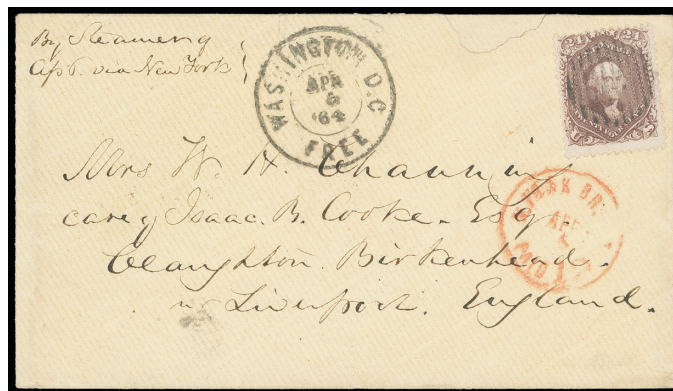 By Steamer of
Apl 6. via New York
WASHINGTON D.C.
APR
5
'64
FREE
24 24
U S
Mrs W. H. Channing
care of Isaac. B. Cooke. Esq.
Claughton. Birkenhead.
nr Liverpool. England.
BR.
AP
PAID